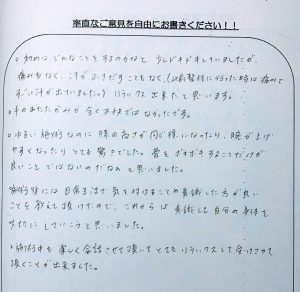 率直なご意見を自由にお書きください!!
・初めはどんなことをするのかなと 少しドキドキしていましたが、
痛みもなく、汗がふきだすこともなく、(以前整体に行った時は痛みで
すごい汗が出ていました。) リラックス出来たと思います。
・手のあたたかみが 全く不快ではなかったです。
・ゆるい施術なのに 膝の高さが同じ様になったり、腕が上げ
やすくなったり とても驚きでした。骨をボキボキすることだけが
良いことではないのだなと思いました。
施術後には日常生活で気を付けることや意識した方が良い
ことを教えて頂けたので、これからは 意識して自分の身体を
大切にしていこうと思いました。
・施術中も楽しく会話させて頂いてとてもリラックスして受けさせて
頂くことが出来ました。